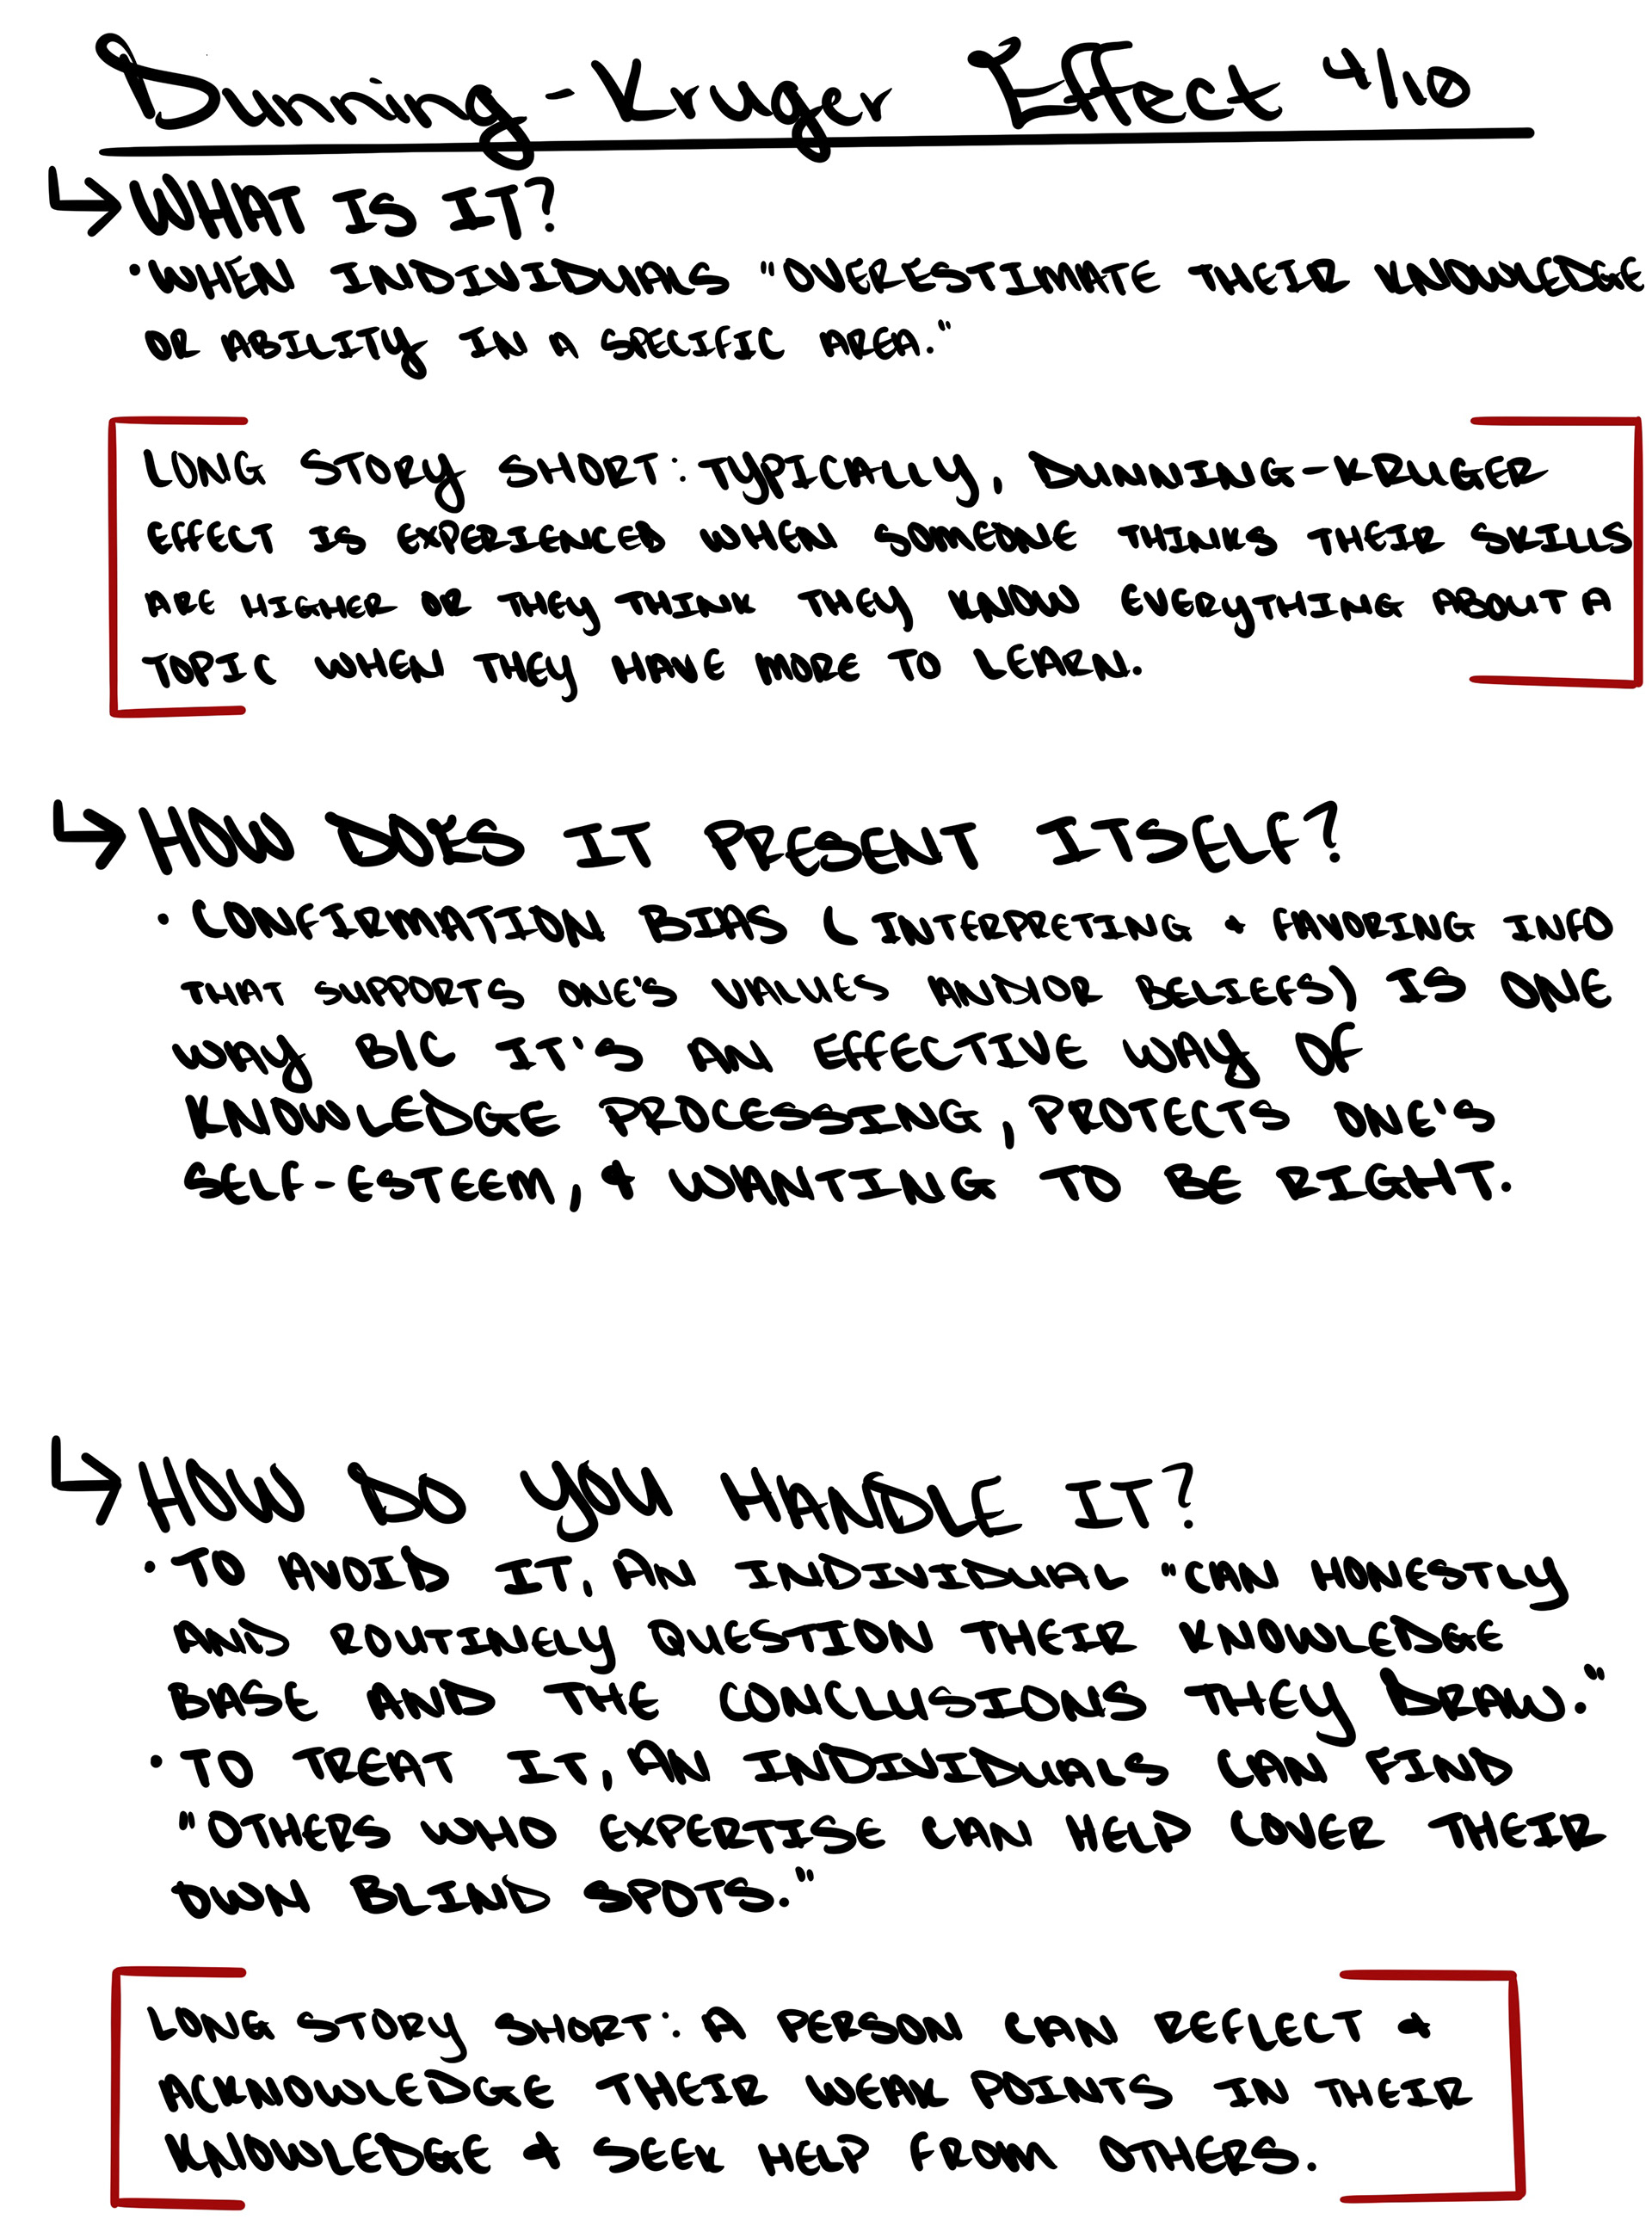 Dunning-Kruger Effect 4/10
WHAT IS IT?
• WHEN INDIVIDUALS "OVERESTIMATE THEIR KNOWLEDGE
OR ABILITY IN A SPECIFIC AREA."
LONG STORY SHORT: TYPICALLY, DUNNING-KRUGER
EFFECT IS EXPERIENCED WHEN SOMEONE THINKS THEIR SKILLS
ARE HIGHER OR THEY THINK THEY KNOW EVERYTHING ABOUT A
TOPIC WHEN THEY HAVE MORE TO LEARN.
HOW DOES IT PRESENT ITSELF?
• CONFIRMATION BIAS (INTERPRETING & FAVORING INFO
THAT SUPPORTS ONE'S VALUES AND/OR BELIEFS) IS ONE
WAY B/C IT'S AN EFFECTIVE WAY OF
KNOWLEDGE PROCESSING, PROTECTS ONE'S
SELF-ESTEEM, & WANTING TO BE RIGHT.
HOW DO YOU HANDLE IT?
• TO AVOID IT, AN INDIVIDUAL "CAN HONESTLY
AND ROUTINELY QUESTION THEIR KNOWLEDGE
BASE AND THE CONCLUSIONS THEY DRAW."
• TO TREAT IT, AN INDIVIDUALS CAN FIND
"OTHERS WHO EXPERTISE CAN HELP COVER THEIR
OWN BLIND SPOTS."
LONG STORY SHORT: A PERSON CAN REFLECT &
ACKNOWLEDGE THEIR WEAK POINTS IN THEIR
KNOWLEDGE & SEEK HELP FROM OTHERS.